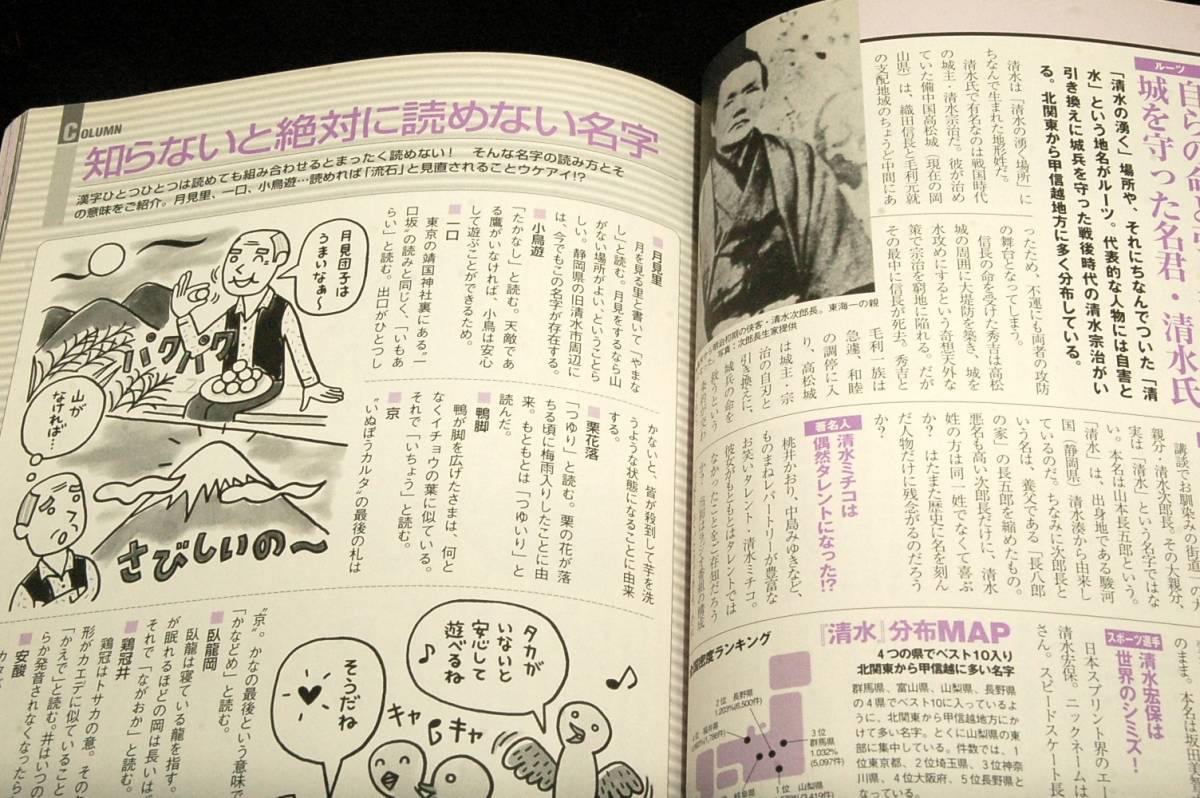 COLUMN
知らないと絶対に読めない名字
漢字ひとつひとつは読めても組み合わせるとまったく読めない！　そんな名字の読み方とそ
の意味をご紹介。月見里、一口、小鳥遊…読めれば「流石」と見直されることウケアイ!?
■月見里
月を見る里と書いて「やまな
し」と読む。月見をするなら山
がない場所がよい、ということら
しい。静岡県の旧清水市周辺に
は、今でもこの名字が存在する。
■小鳥遊
「たかなし」と読む。天敵であ
る鷹がいなければ、小鳥は安心
して遊ぶことができるため。
■一口
東京の靖国神社裏にある“一
口坂”の読みと同じく、「いもあ
らい」と読む。出口がひとつし
月見団子は
うまいなぁ〜
パクパク
山が
なければ…
さびしいの〜
かないと、皆が殺到して芋を洗
うような状態になることに由来
する。
■栗花落
「つゆり」と読む。栗の花が落
ちる頃に梅雨入りしたことに由
来。もともとは「つゆいり」と
読んだ。
■鴨脚
鴨が脚を広げたさまは、何と
なくイチョウの葉に似ている。
それで「いちょう」と読む。
■京
“いぬぼうカルタ”の最後の札は
“京”。かなの最後という意味で
「かなどめ」と読む。
■臥龍岡
臥龍は寝ている龍を指す。
が眠れるほどの岡は長いは
それで「ながおか」と読む。
■鶏冠井
鶏冠はトサカの意。その
形がカエデに似ていること
「かえで」と読む。井はいつの
らか発音されなくなったら
■安酸
タカが
いないと
安心して
遊べるね
そうだね
キャッキャ
ルーツ
城を守った名君・清水氏
「清水の湧く」場所や、それにちなんでついた「清
水」という地名がルーツ。代表的な人物には自害と
引き換えに城兵を守った戦後時代の清水宗治がい
る。北関東から甲信越地方に多く分布している。
清水は「清水の湧く場所」に
ちなんで生まれた地形姓だ。
清水氏で有名なのは戦国時代
の城主・清水宗治だ。彼が治め
ていた備中国高松城（現在の岡
山県）は、織田信長と毛利元就
の支配地域のちょうど中間にあ
ったため、不運にも両者の攻防
の舞台となってしまう。
信長の命を受けた秀吉は高松
城の周囲に大堤防を築き、城を
水攻めにするという奇想天外な
策で宗治を窮地に陥れる。だが
その最中に信長が死去。秀吉と
毛利一族は
急遽、和睦
の調停に入
り、高松城
は城主・宗
治の自刃と
引き換えに、
城兵の命を
救うという
明治初期の侠客・清水次郎長。東海一の親
写真：次郎長生家提供
講談でお馴染みの街道一の
親分・清水次郎長。その大親分、
実は「清水」という名字ではな
い。本名は山本長五郎という。
「清水」は、出身地である駿河
国（静岡県）清水湊から由来し
ているのだ。ちなみに次郎長と
いう名は、養父である「長八郎
の家」の長五郎を縮めたもの。
悪名も高い次郎長だけに、清水
姓の方は同一姓でなくて喜ぶ
か？　はたまた歴史に名を刻ん
だ人物だけに残念がるのだろう
か？
著名人
清水ミチコは
偶然タレントになった!?
桃井かおり、中島みゆきなど、
ものまねレパートリーが豊富な
お笑いタレント・清水ミチコ。
彼女がもともとはタレントでは
なかったことをご存知だろう
スポーツ選手
清水宏保は
世界のシミズ！
日本スプリント界のエー
さん。スピードスケート長
『清水』分布MAP
4つの県でベスト10入り
北関東から甲信越に多い名字
群馬県、富山県、山梨県、長野県
の4県でベスト10に入っている
ように、北関東から甲信越地方にか
けて多い名字。とくに山梨県の東
部に集中している。件数では、1
位東京都、2位埼玉県、3位神奈
川県、4位大阪府、5位長野県と
なっている。
密度ランキング
2位 長野県
1.203%(8,500件)
3位
群馬県
1.032%
(5,097件)
1位 山梨県